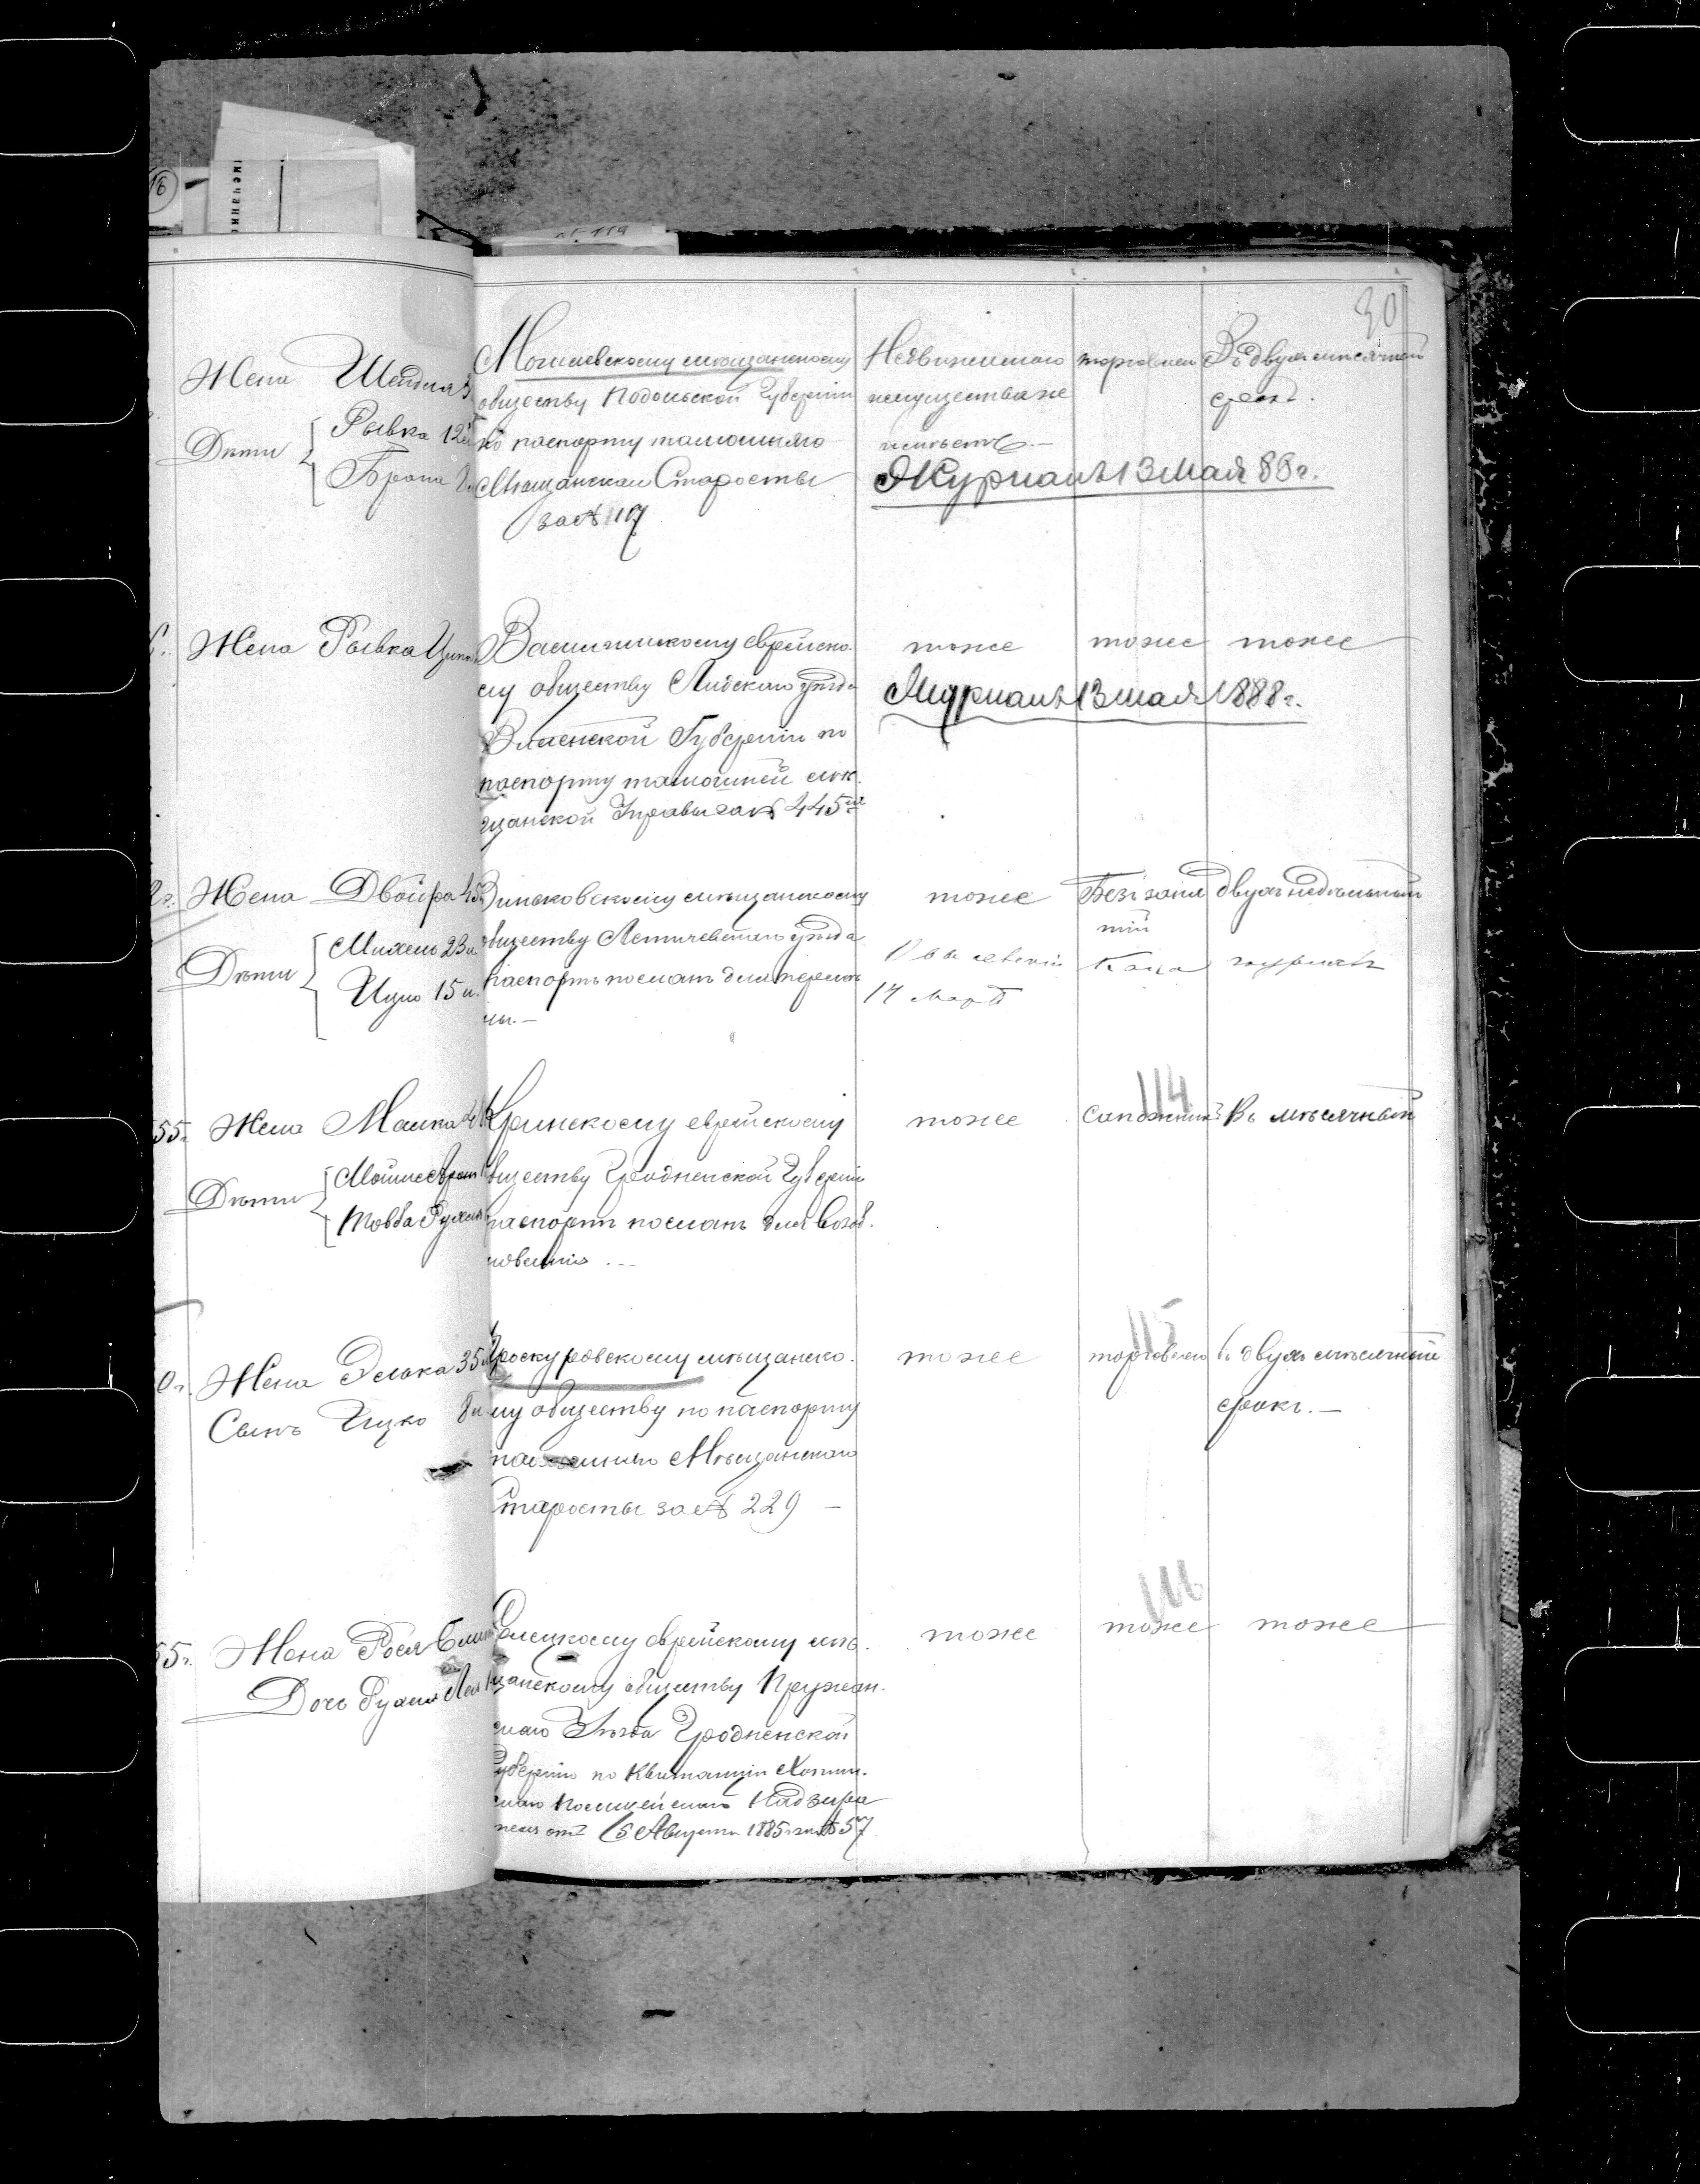 16
№ 119
30
Жена Шейдля
Дѣти Рывка 12 л
Брана
Могилевскому мѣщанскому
обществу Подольской Губерніи
по паспорту тамошняго
Мѣщанскаи Старосты
за № 119
Недвижимаго
имущества не
имѣетъ.—
торговлею
Въ двухъ мѣсячный
срокъ.
Журналъ 13 Мая 88 г.
Жена Рывка
Василишкому еврейско
му обществу Лидскаго уѣзда
Виленской Губерніи по
паспорту тамошней мѣ
щанской Управы за № 445
тоже тоже тоже
Журналъ 13 мая 1888 г.
Жена Двойра 45
Дѣти Михель 23 л.
Ицко 15 л.
Зиньковскому мѣщанскому
обществу Летичевскаго уѣзда
паспортъ посланъ для перемѣ
ны.—
тоже
Безъ заня
тій
двухъ недѣльный
14 Март
журналъ
55 г. Жена Малка
Дѣти Мойше
Товба Рухля
Кринскому еврейскому
обществу Гродненской Губерніи
паспортъ посланъ для возоб
новленія.—
тоже
114
сапожник
Въ мѣсячный
0 г. Жена Элька 35
Сынъ Ицко 8 л.
Проскуровскому мѣщанско
му обществу по паспорту
Мѣщанскаго
Старосты за № 229 —
тоже
115
торговлею
въ двухъ мѣсячный
срокъ.—
55 г. Жена Рося
Дочь Рухля Лея
Селецкому еврейскому мѣ
щанскому обществу Пружан
скаго Уѣзда Гродненской
Губерніи по Квитанціи Хотин
скаго Полицейскаго Надзира
теля отъ 5 Августа 1885 г. за № 57
тоже
116
тоже тоже